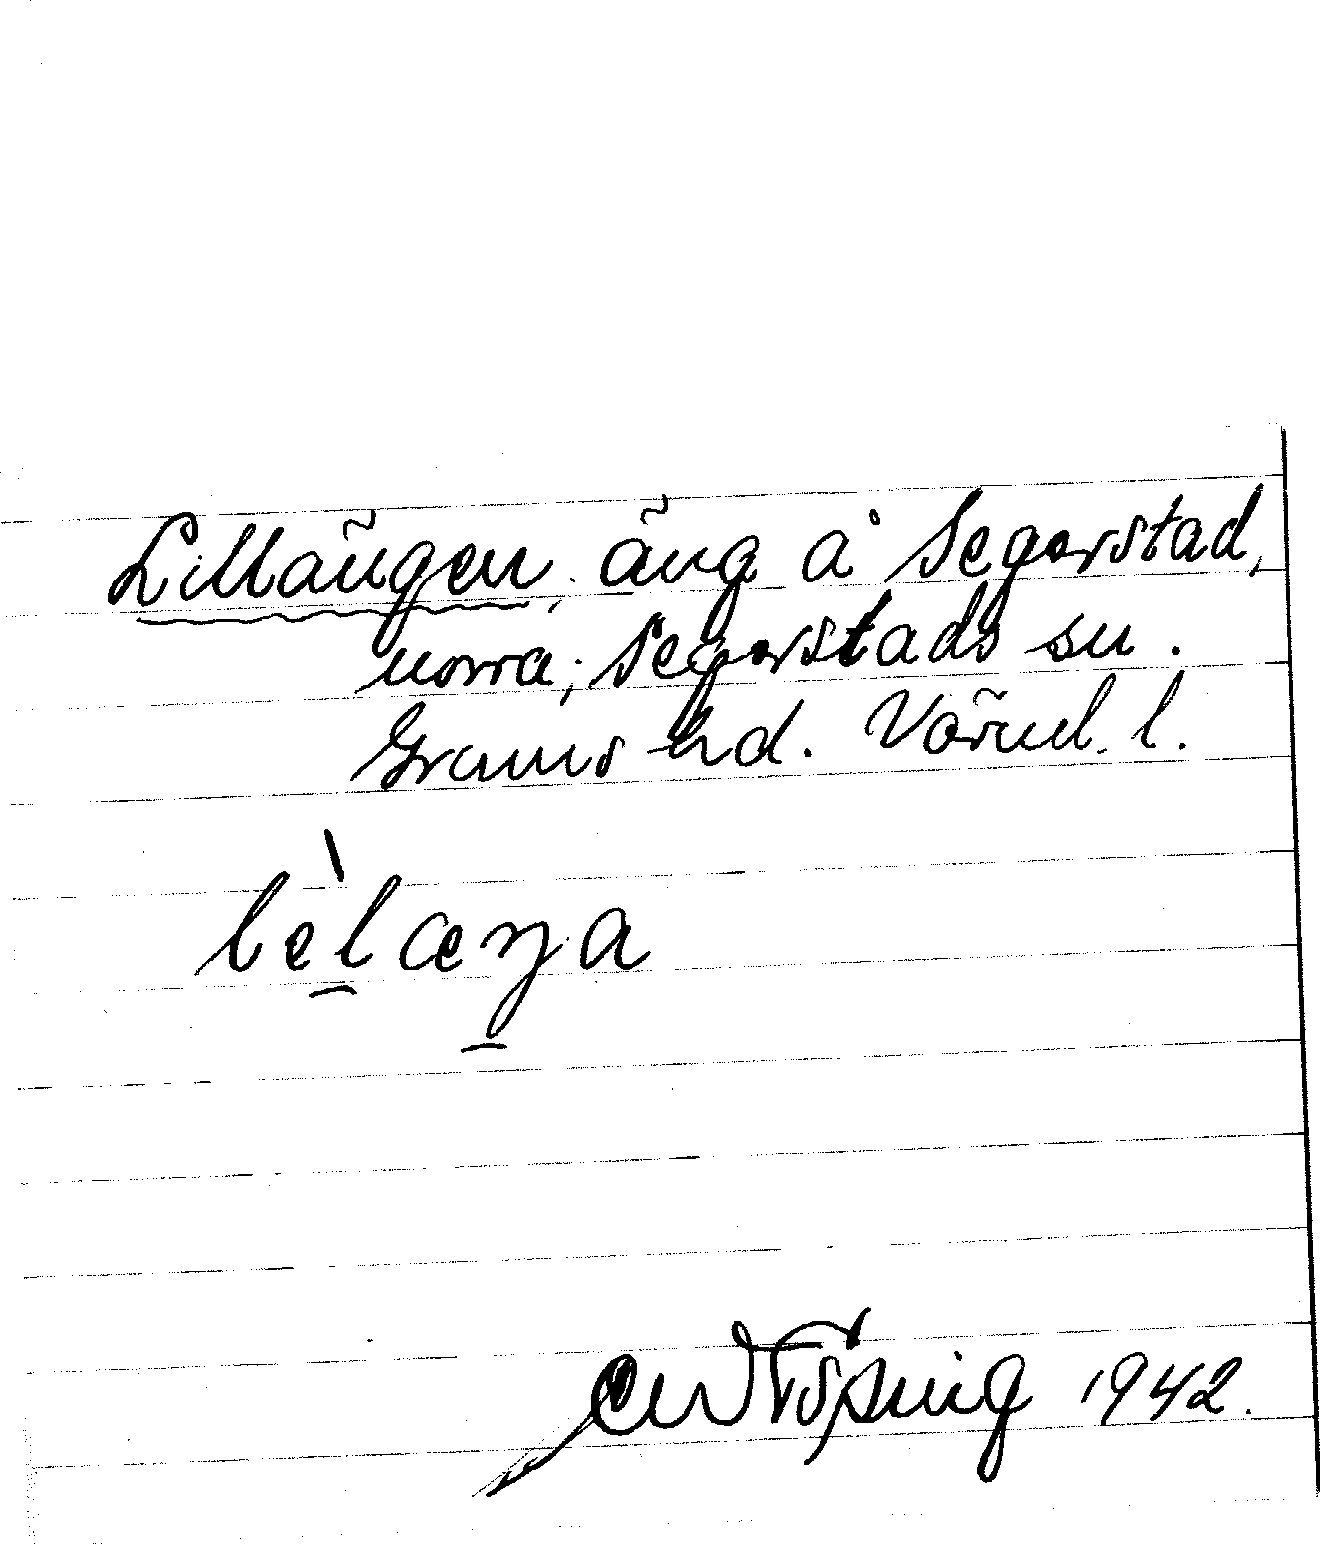 Lillängen, äng å Segerstad,
norra; Segerstads sn.
Grums hd. Värml. l.
lèlæŋa
1942.